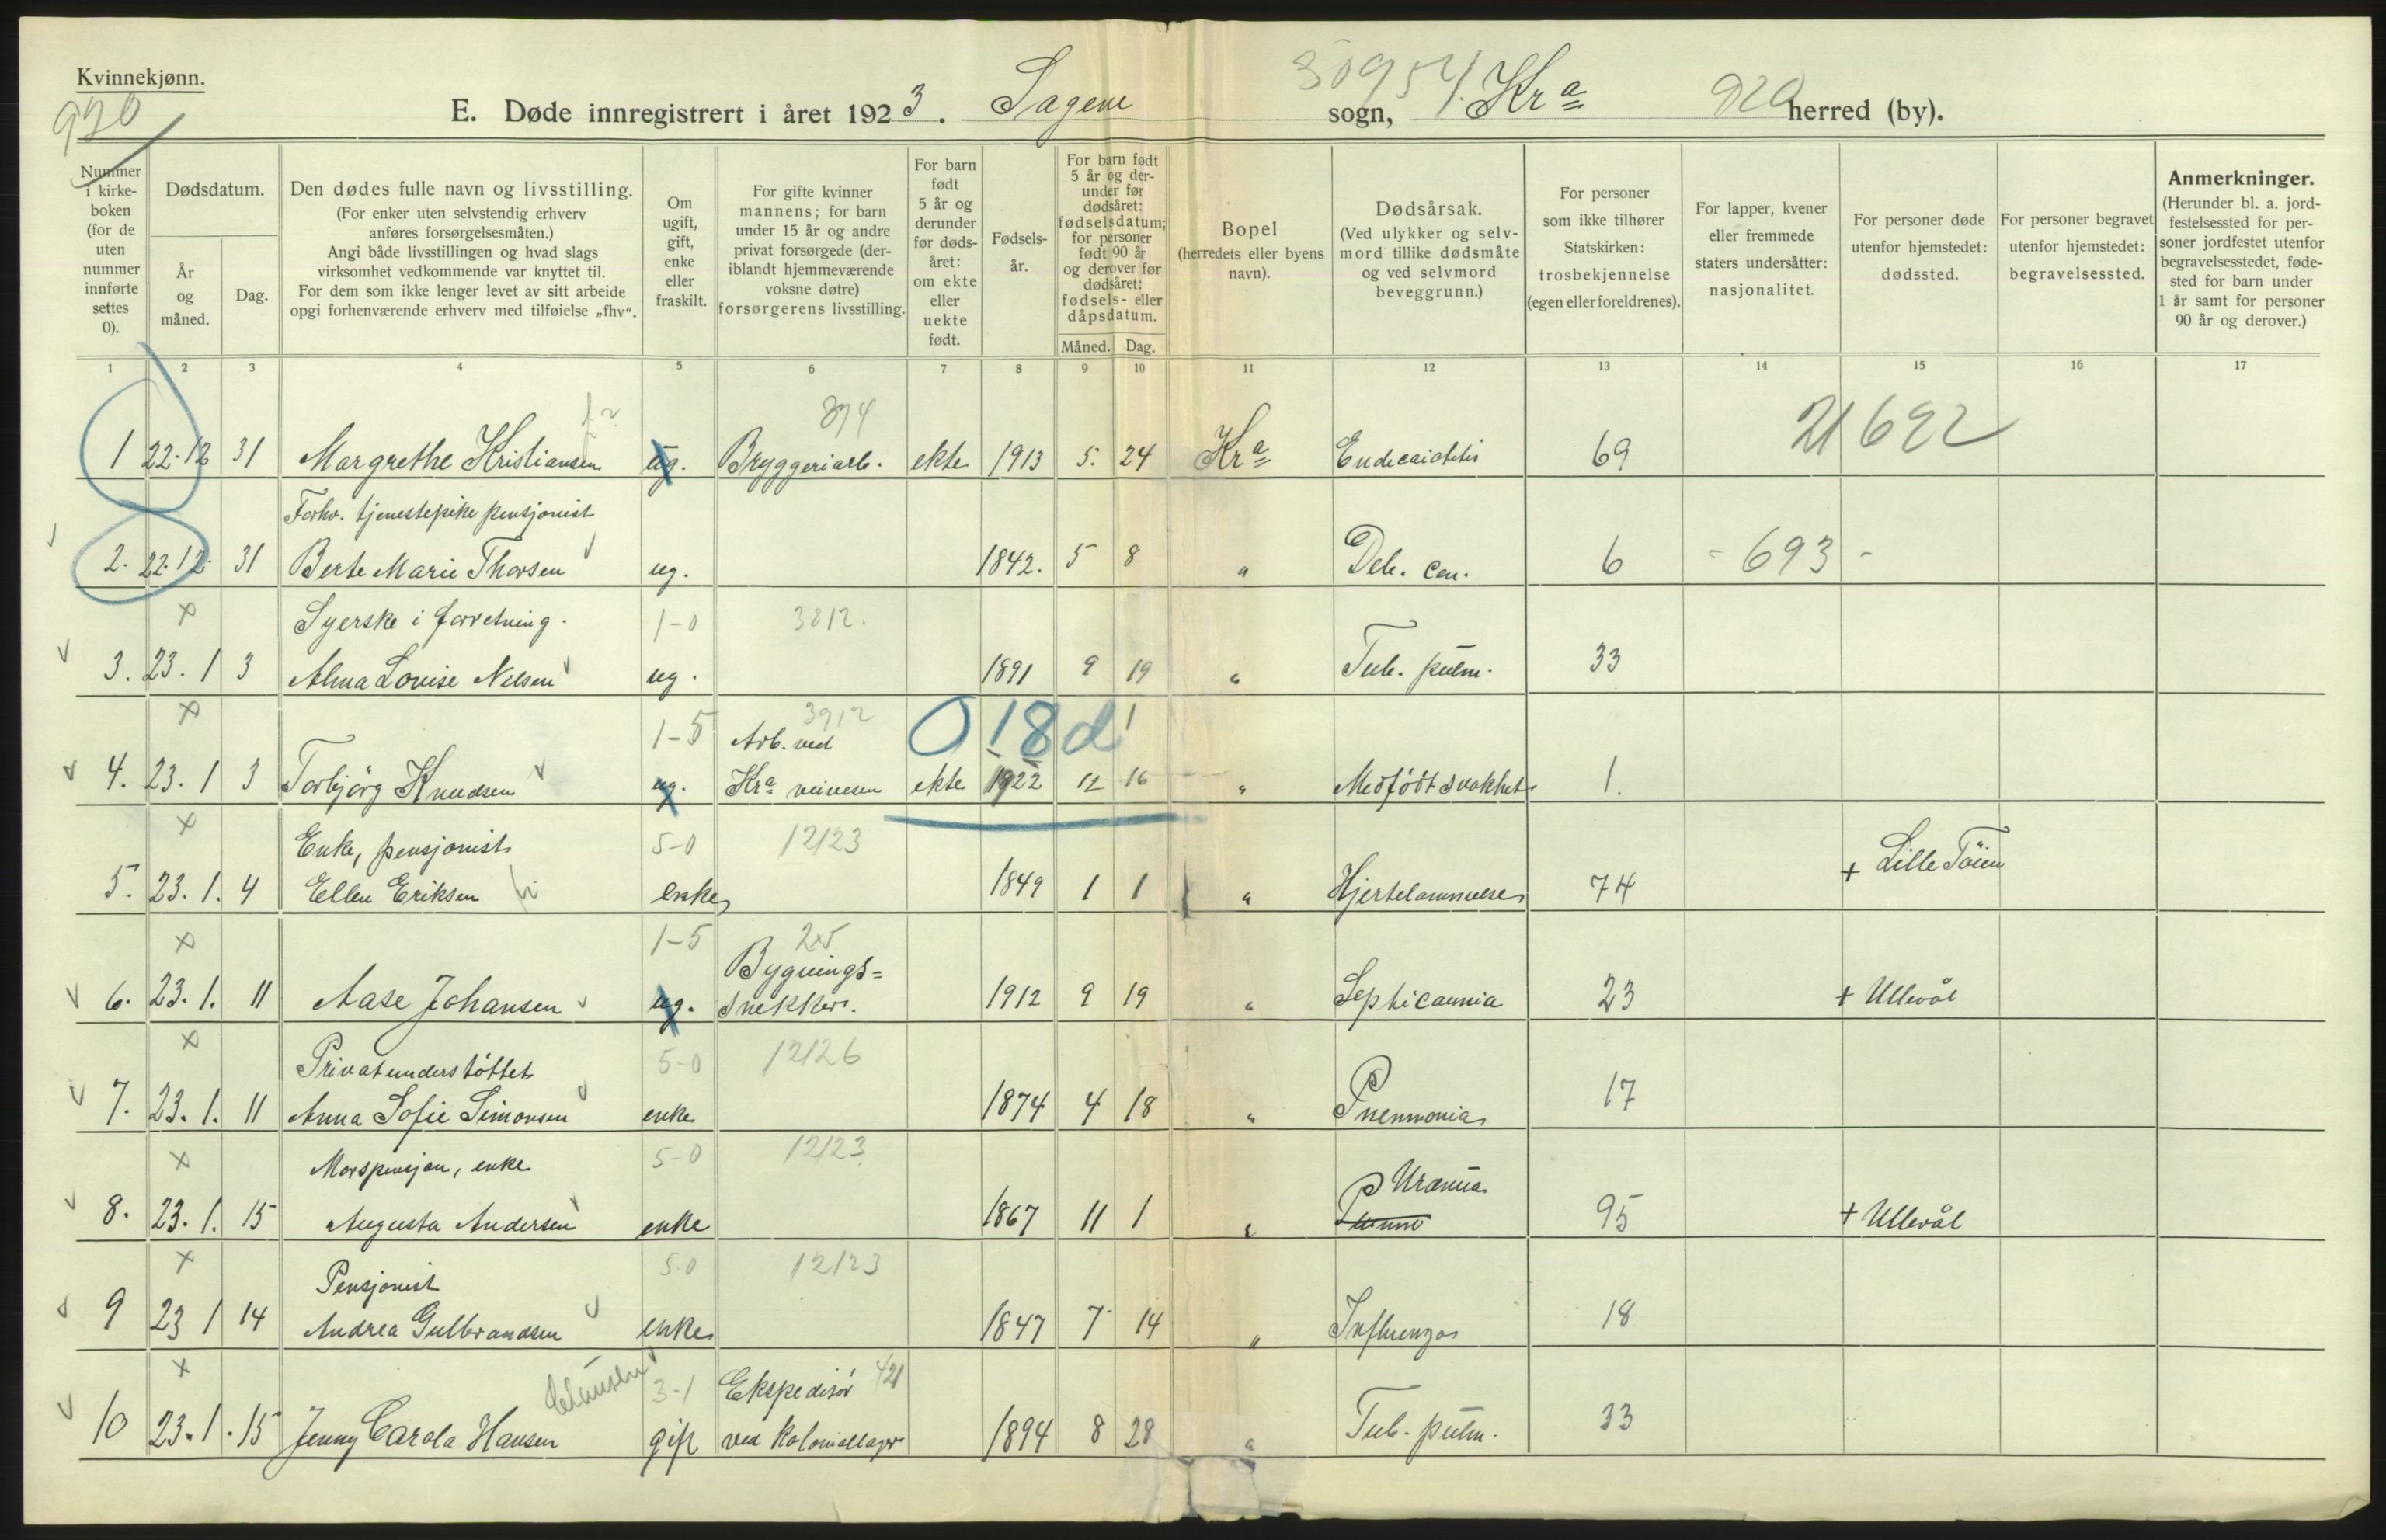 Kvinnekjønn.
920
E. Døde innregistrert i året 1923. Sagene sogn, Kra herred (by).
30954
920
Nummer i kirkeboken (for de uten nummer innførte settes 0).
Dødsdatum.
År og måned.
Dag.
Den dødes fulle navn og livsstilling.
(For enker uten selvstendig erhverv anføres forsørgelsesmåten.)
Angi både livsstillingen og hvad slags virksomhet vedkommende var knyttet til.
For dem som ikke lenger levet av sitt arbeide opgi forhenværende erhverv med tilføielse „fhv“.
Om ugift, gift, enke eller fraskilt.
For gifte kvinner mannens; for barn under 15 år og andre privat forsørgede (deriblandt hjemmeværende voksne døtre) forsørgerens livsstilling.
For barn født 5 år og derunder før dødsåret: om ekte eller uekte født.
Fødselsår.
For barn født 5 år og derunder før dødsåret: fødselsdatum; for personer født 90 år og derover før dødsåret: fødsels- eller dåpsdatum.
Måned. Dag.
Bopel
(herredets eller byens navn).
Dødsårsak.
(Ved ulykker og selvmord tillike dødsmåte og ved selvmord beveggrunn.)
For personer som ikke tilhører Statskirken: trosbekjennelse (egen eller foreldrenes).
For lapper, kvener eller fremmede staters undersåtter: nasjonalitet.
For personer døde utenfor hjemstedet: dødssted.
For personer begravet utenfor hjemstedet: begravelsessted.
Anmerkninger.
(Herunder bl. a. jordfestelsessted for personer jordfestet utenfor begravelsesstedet, fødested for barn under 1 år samt for personer 90 år og derover.)
1 2 3 4 5 6 7 8 9 10 11 12 13 14 15 16 17
874
1 22.12 31 Margrethe Kristiansen ug. Bryggeriarb. ekte 1913 5. 24 Kra 69 21692
Forhv. tjenestepike pensjonist
2. 22.12. 31 Berte Marie Thorsen ug. 1842. 5 8 " Deb. cor. 6 - 693 -
x Syerske i forretning. 1-0 3812.
3. 23. 1 3 Alma Lovise Nilsen ug. 1891 9 19 " Tub. pulm. 33
x 1-5 Arb. ved 3912 0 18 d
4. 23. 1 3 Torbjörg Knudsen ug. Kra veivesen ekte 1922 12 16 " Medfödt svakhet 1.
x Enke, pensjonist 5-0 12123
5. 23. 1. 4 Ellen Eriksen enke 1849 1 1 " Hjertelammelse 74 + Lille Töien
x 1-5 Bygnings=
6. 23. 1. 11 Aase Johansen ug. snekker. 1912 9 19 " Septicaemia 23 + Ullevål
x Privatunderstöttet 5-0 12126
7. 23. 1. 11 Anna Sofie Simonsen enke 1874 4 18 " Pneumonia 17
x Morspensjon, enke 5-0 12123 Uræmia
8. 23. 1. 15 Augusta Andersen enke 1867 11 1 " 95 + Ullevål
x Pensjonist 5-0 12123
9 23 1 14 Andrea Gulbrandsen enke 1847 7 14 " Influenza 18
x Clausen 3-1 Ekspeditör 421
10 23. 1. 15 Jenny Carola Hansen gift ved Koloniallager 1894 8 28 " Tub. pulm. 33